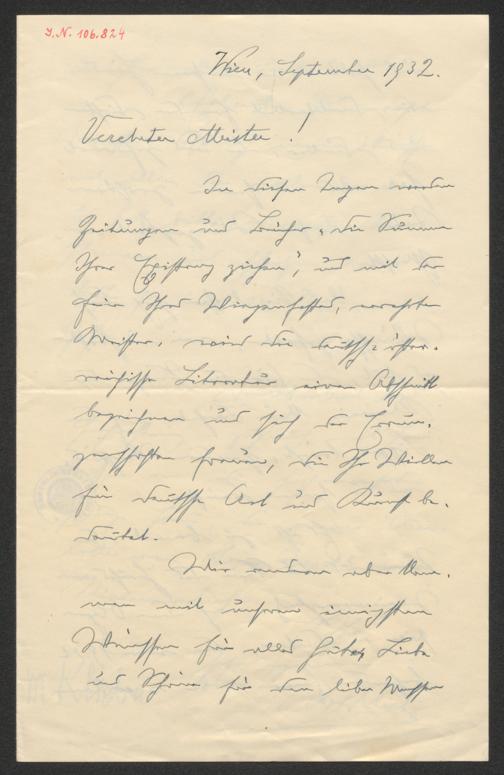 J.N. 106.824
Wien, September 1932.
Verehrter Meister!
In diesen Tagen werden
Zeitungen und Bücher „die Summe
Ihrer Existenz ziehen", und mit der
Feier Ihres Wiegenfestes, verehrter
Meister, wird die deutsch-öster-
reichische Literatur einen Abschnitt
bezeichnen und sich der Errun-
genschaften freuen, die Ihr Wirken
für deutsche Art und Kunst be-
deutet.
Wir andern aber kom-
men mit unseren innigsten
Wünschen für alles Gute, Liebe
und Schöne für den lieben Menschen